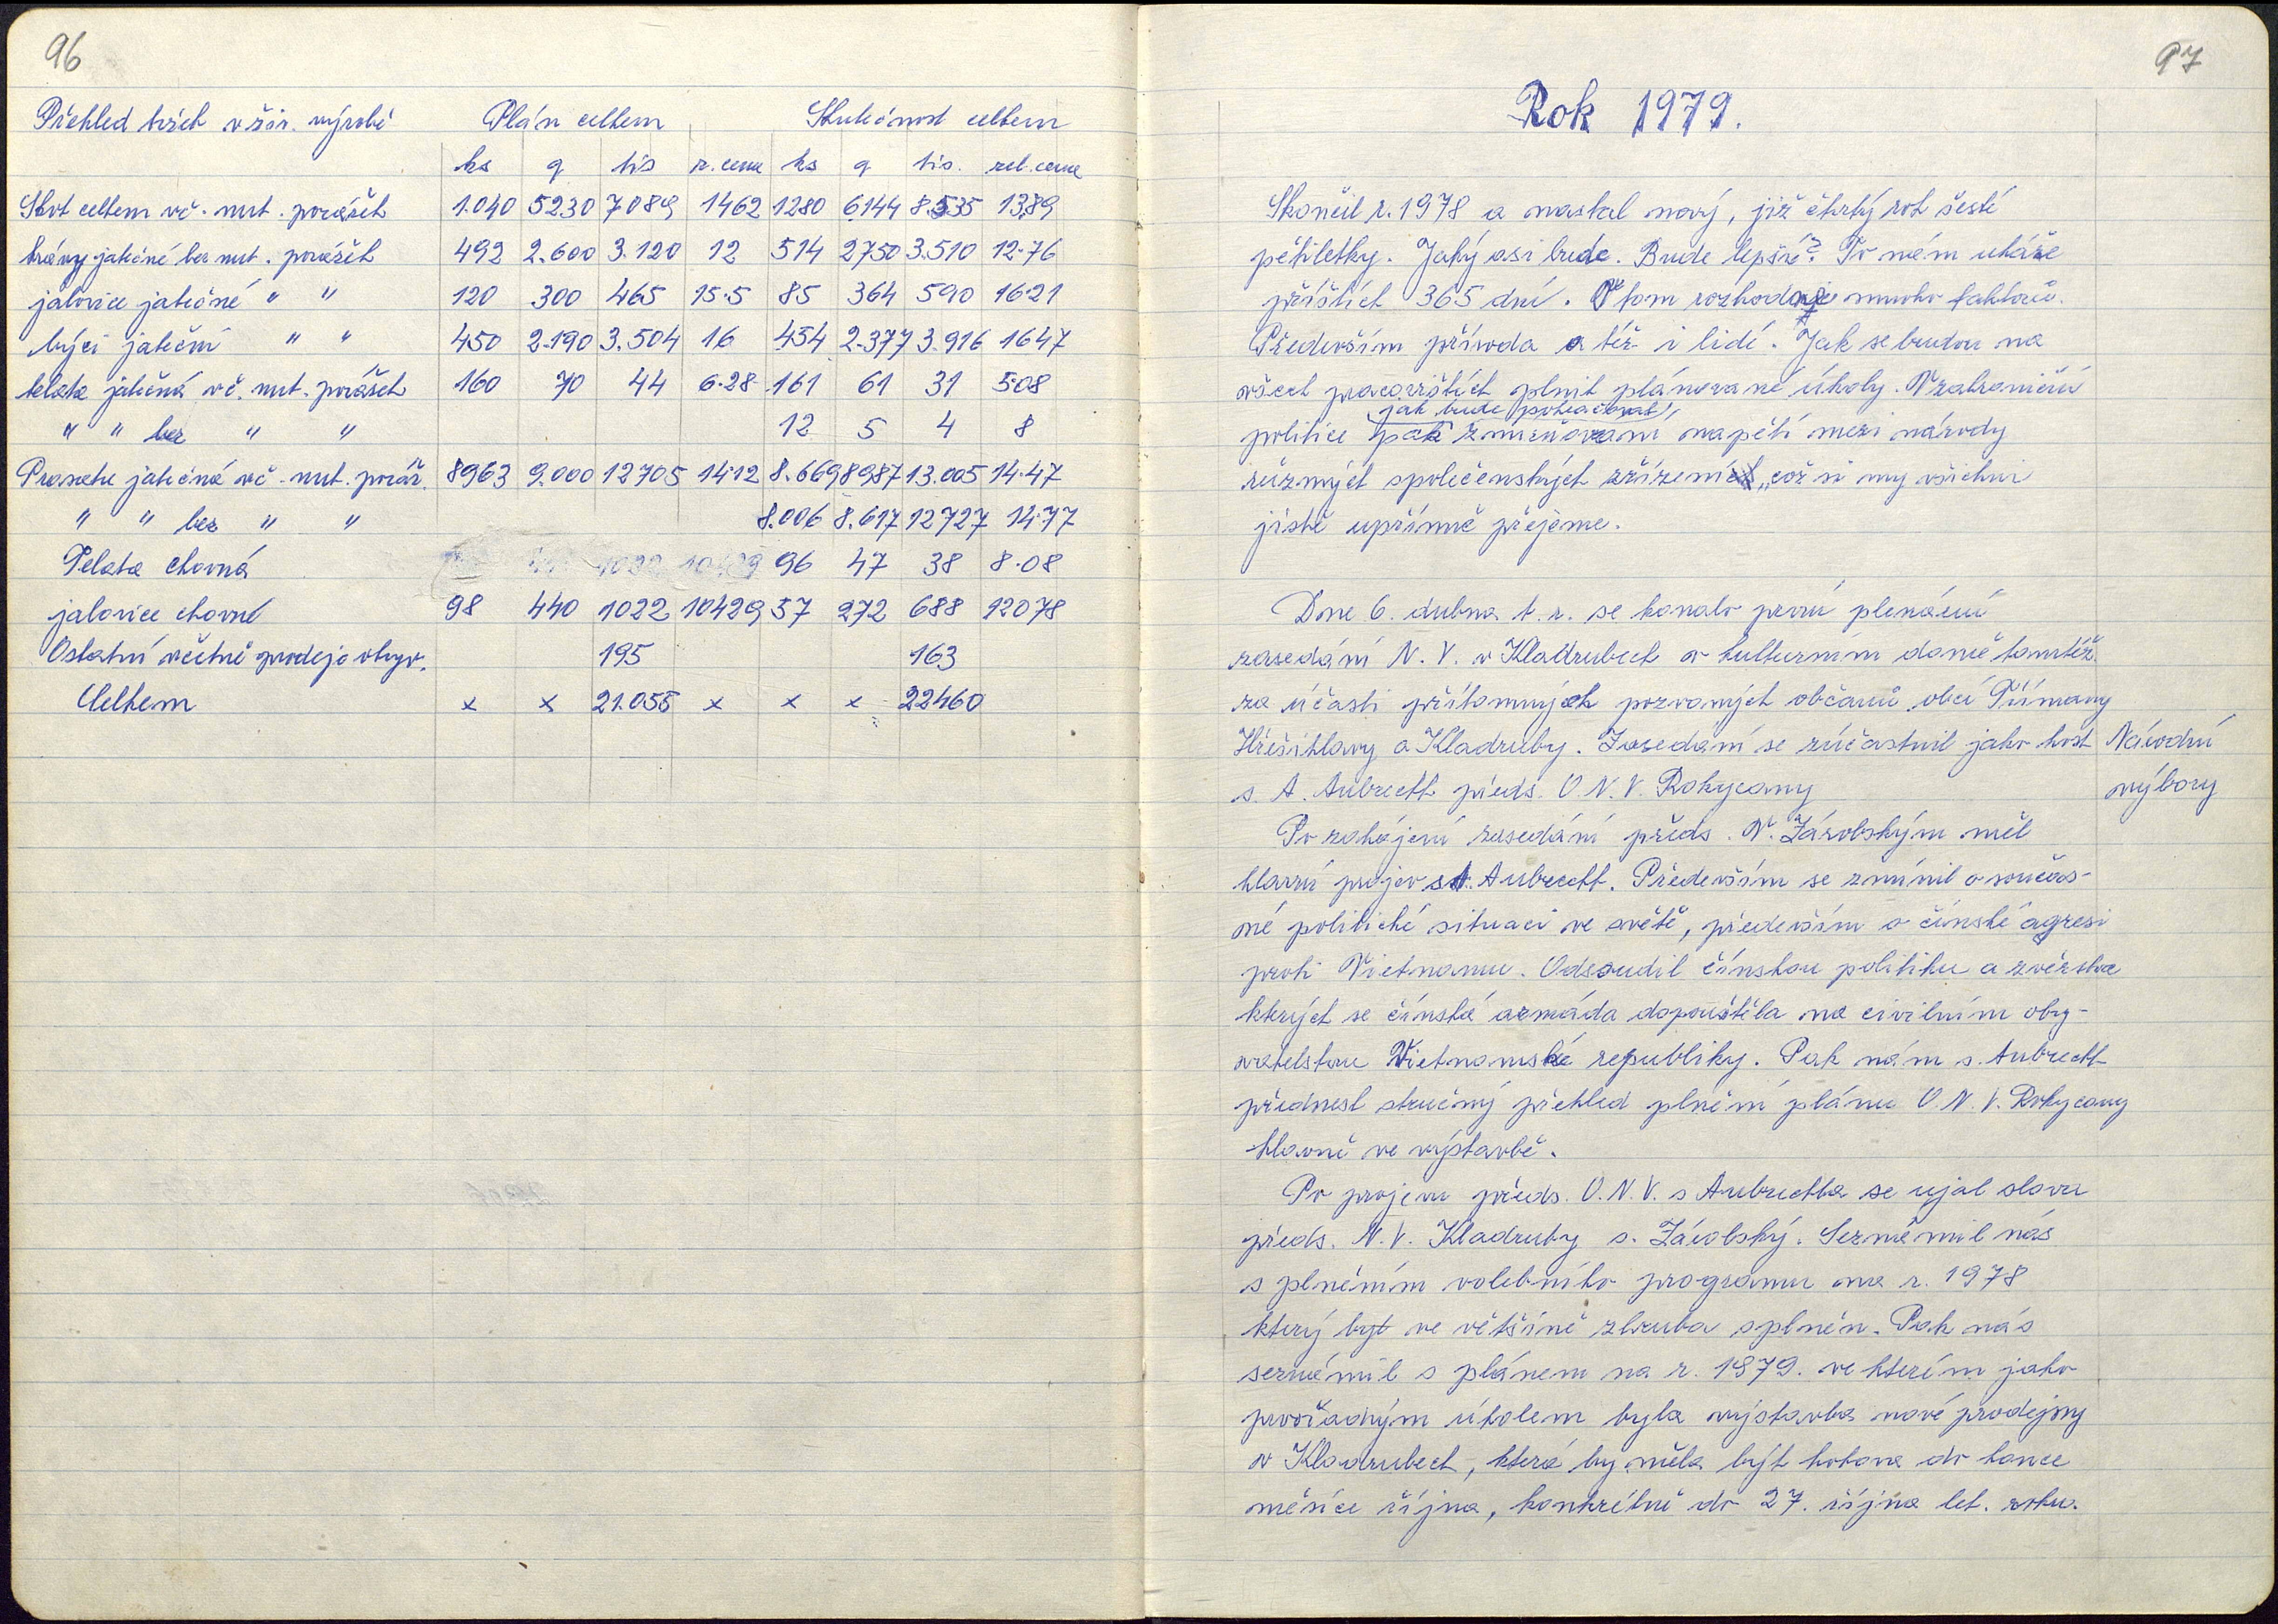 96
Přehled tržeb v živ. výrobě Plán celkem Skutečnost celkem
ks q tis r. cena ks q tis. rel. cena
Skot celkem vč. nut. porážek 1.040 5230 7089 1462 1280 6144 8.535 1389
krávy jatečné bez nut. porážek 492 2.600 3.120 12 514 2750 3.510 12.76
jalovice jatečné " " 120 300 465 15.5 85 364 590 16.21
býci jateční " " 450 2.190 3.504 16 454 2.377 3.916 1647
telata jatečná vč. nut. porážek 160 70 44 6.28 161 61 31 5.08
" " bez " " 12 5 4 8
Prasata jatečná vč. nut. poráž. 8963 9.000 12705 14.12 8.669 8987 13.005 14.47
" " bez " " 8.006 8.617 12727 14.77
Telata chovná 96 47 38 8.08
jalovice chovné 98 440 1022 10429 57 272 688 12078
Ostatní včetně prodeje obyv. 195 163
Celkem x x 21.055 x x x 22460
97
Rok 1979.
Skončil r. 1978 a nastal nový, již čtvrtý rok šesté
pětiletky. Jaký asi bude. Bude lepší? To nám ukáže
příštích 365 dní. O tom rozhoduje mnoho faktorů.
Především příroda a též i lidé. Jak se budou na
všech pracovištích plnit plánované úkoly. V zahraniční
jak bude pokračovat
politice pak zmirňování napětí mezi národy
různých společenských zřízení, což si my všichni
jistě upřímně přejeme.
Dne 6. dubna t. r. se konalo první plenární
zasedání N. V. v Kladrubech v kulturním domě tamtéž
za účasti přítomných pozvaných občanů obcí Třímany
Hřešihlavy a Kladruby. Zasedání se zúčastnil jako host
Národní
s. A. Aubrecht předs. O. N. V. Rokycany
výbory
Po zahájení zasedání předs. V. Zárobským měl
hlavní projev s A. Aubrecht. Především se zmínil o součas-
né politické situaci ve světě, především o čínské agresi
proti Vietnamu. Odsoudil čínskou politiku a zvěrstva
kterých se čínská armáda dopouštěla na civilním oby-
vatelstvu Vietnamské republiky. Pak nám s. Aubrecht
přednesl stručný přehled plnění plánu O. N. V. Rokycany
hlavně ve výstavbě.
Po projevu předs. O. N. V. s Aubrechta se ujal slova
předs. N. V. Kladruby s. Zárobský. Seznámil nás
s plněním volebního programu na r. 1978
který byl ve většině zhruba splněn. Pak nás
seznámil s plánem na r. 1979. ve kterém jako
prvořadým úkolem byla výstavba nové prodejny
v Kladrubech, která by měla být hotova do konce
měsíce října, konkrétně do 27. října let. roku.